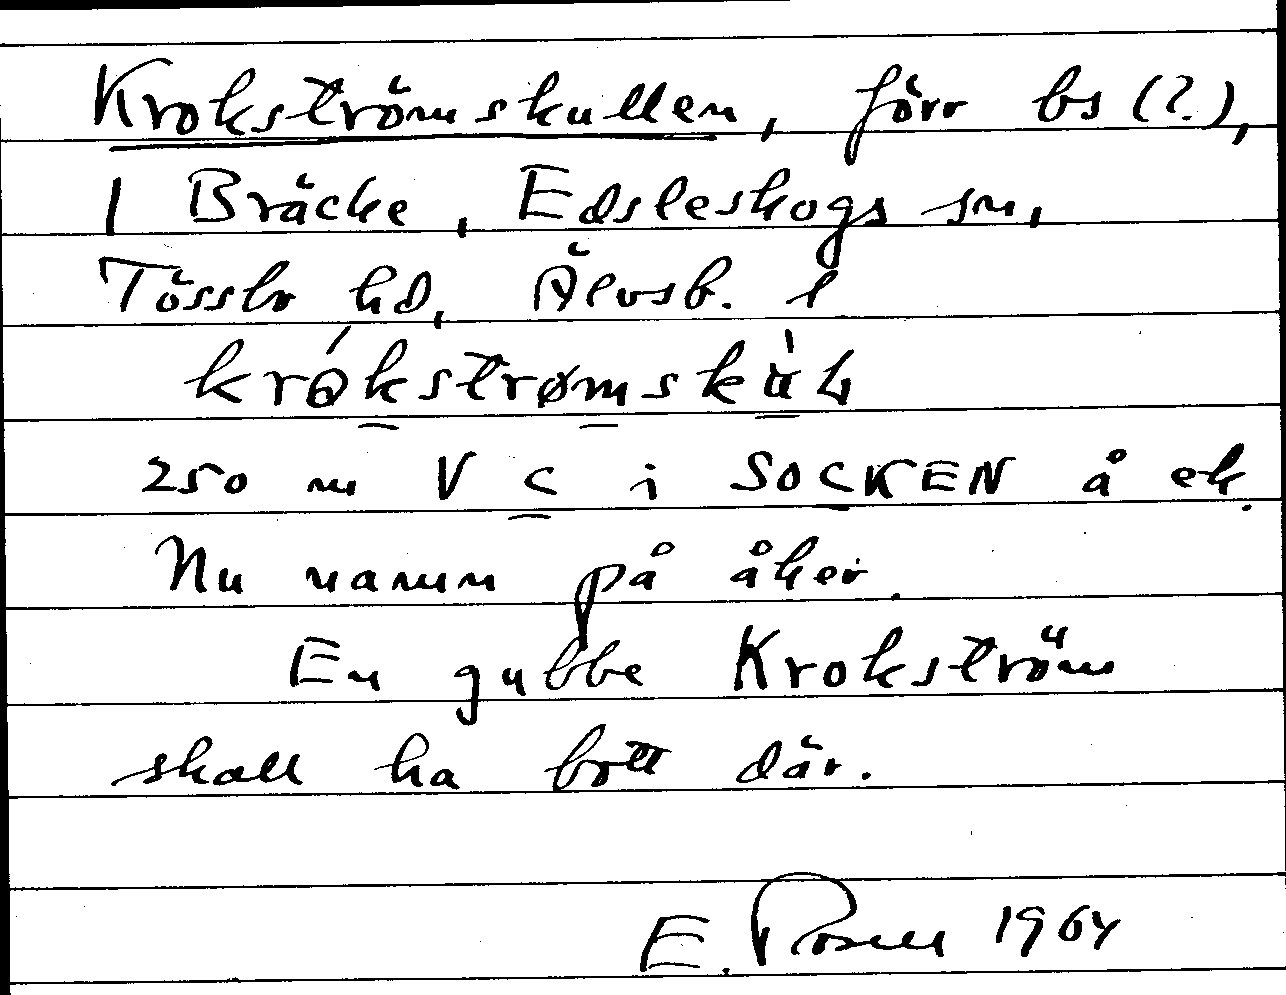 Krokströmskullen, förr bs (?),
1 Bräcke, Edsleskogs sn,
Tössbo hd, Älvsb. l
250 m V C i SOCKEN å ek.
Nu namn på åker.
En gubbe Krokström
skall ha bott där.
E. Rosell 1964